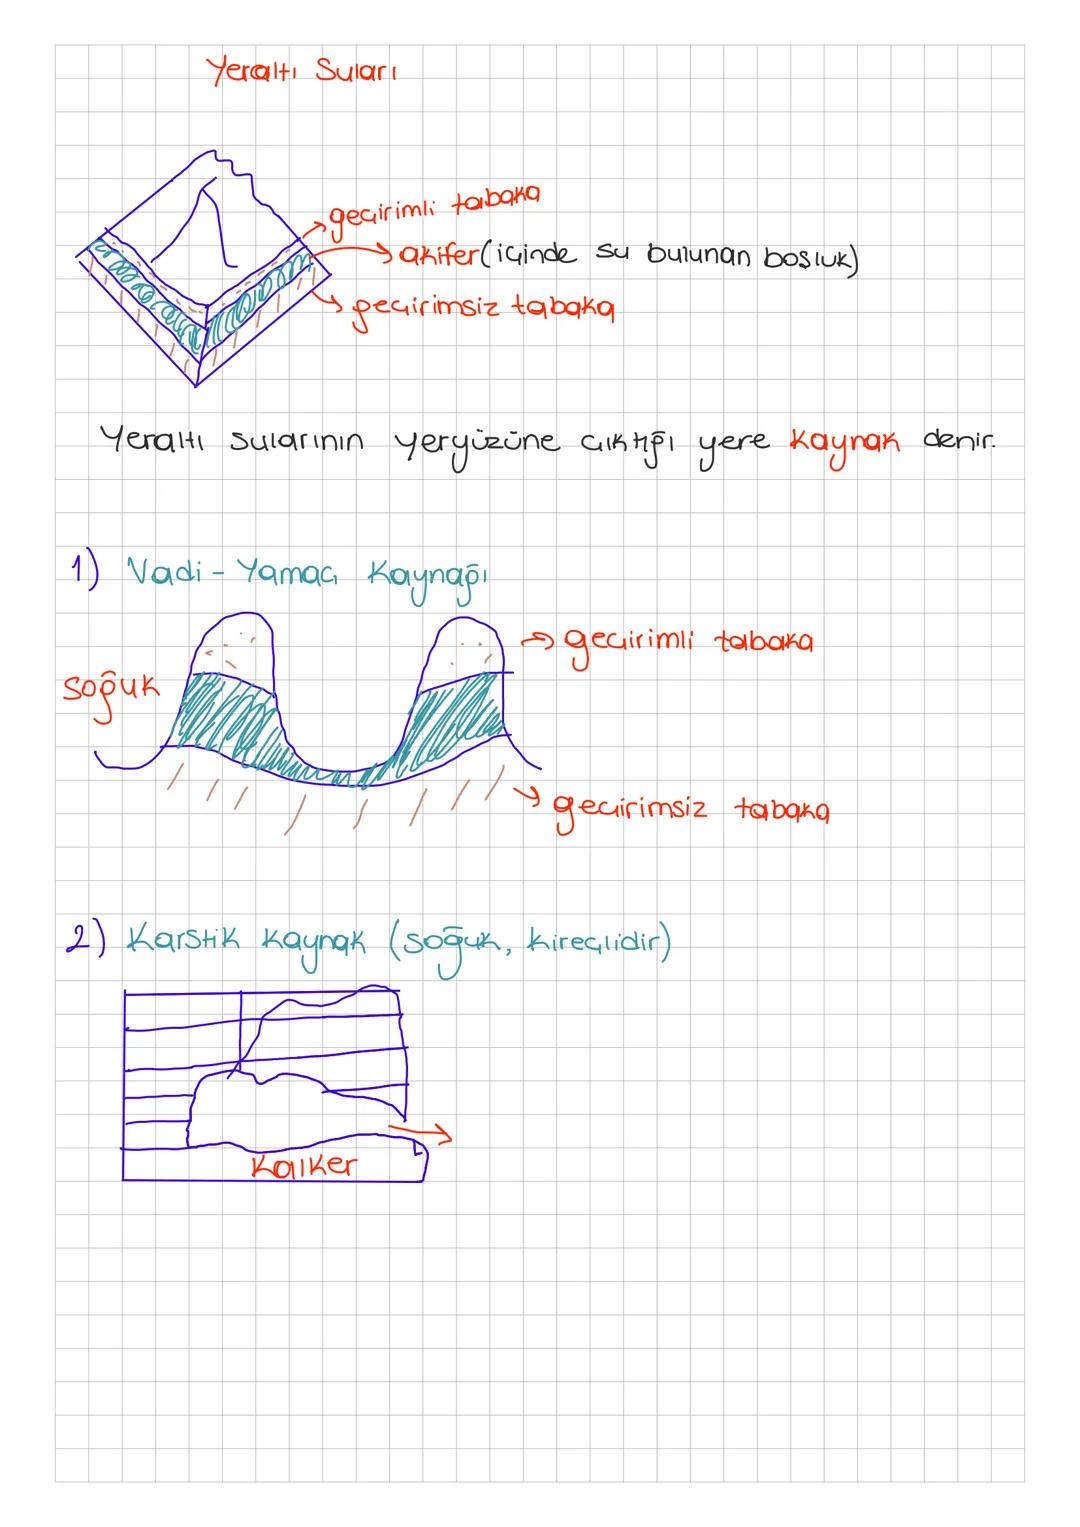 Yeraltı Suları
geçirimli tabaka
akifer (içinde su bulunan boşluk)
geçirimsiz tabaka
Yeraltı sularının yeryüzüne çıktığı yere kaynak denir.
1) Vadi - Yamaç Kaynağı
geçirimli tabaka
soğuk
geçirimsiz tabaka
2) Karstik kaynak (soğuk, kireçlidir)
Kalker